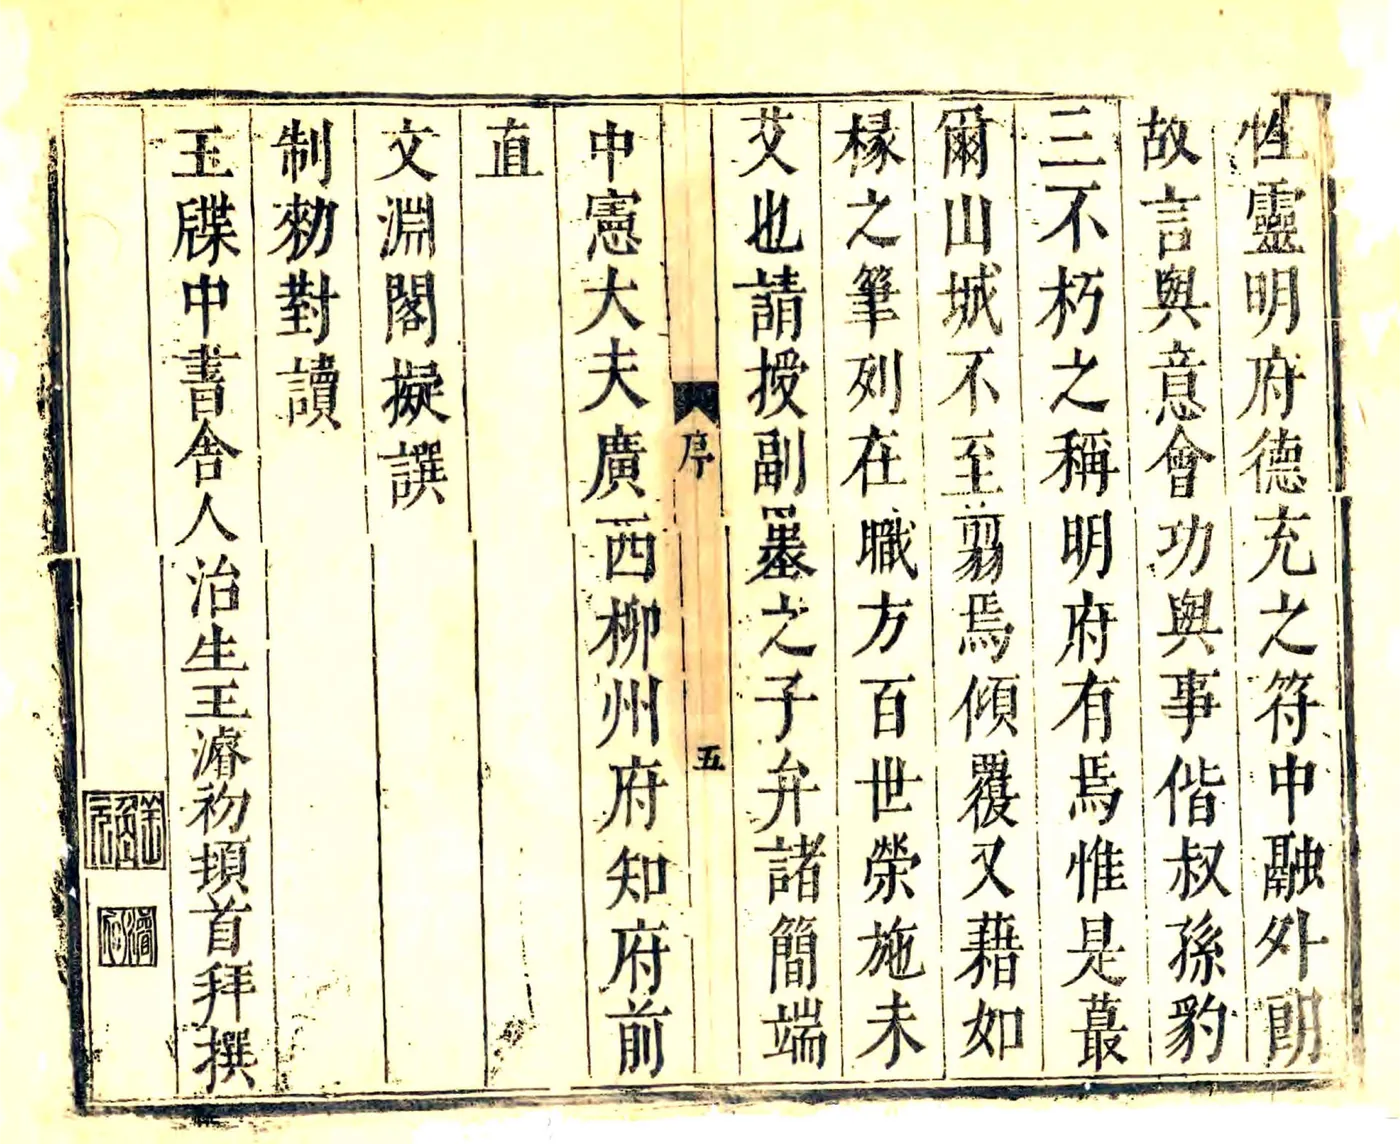 性靈明府德充之符中融外朗
故言與意會功與事偕叔孫豹
三不朽之稱明府有焉惟是蕞
爾山城不至翦焉傾覆又藉如
椽之筆列在職方百世榮施未
艾也請授副墨之子弁諸簡端
序
五
中憲大夫廣西柳州府知府前
直
文淵閣擬譔
制勑對讀
玉牒中書舍人治生王濬初頓首拜撰